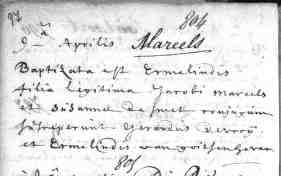 97 804
9 Aprilis Marcels
Baptizata est Ermelindis
filia legitima Jacobi Marcels
et Susanne de smet conjugum
susceperunt Gerardus
et Ermelindis van
805